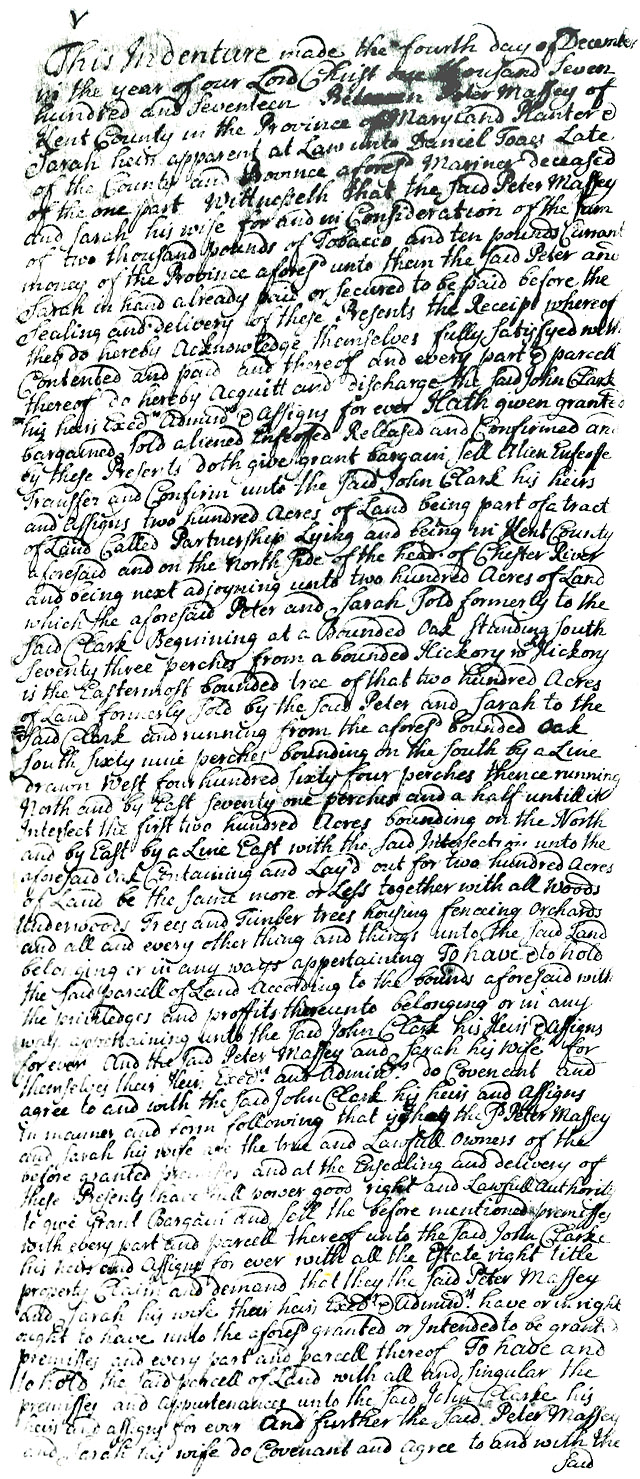 This Indenture made the fourth day of December
in the year of our Lord Christ one thousand Seven
hundred and Seventeen Between Peter Massey of
Kent County in the Province of Maryland Planter &
Sarah heir apparent at Law unto Daniel Toaes Late
of the County and Province aforesd Mariner deceased
of the one part Wittnesseth that the Said Peter Massey
and Sarah his wife for and in Consideration of the Sum
of two thousand pounds of Tobacco and ten pounds Currant
money of the Province aforesd unto them the Said Peter and
Sarah in hand already paid or Secured to be paid before the
Sealing and delivery of these Presents the Receipt whereof
they do hereby Acknowledge themselves fully Satisfyed
Contented and paid and thereof and every part & parcell
thereof do hereby Acquitt and discharge the Said John Clark
his heirs Execrs Adminrs & Assigns for ever Hath given granted
bargained Sold aliened Enfeofed Released and Confirmed and
by these Presents doth give grant bargain Sell Alien Enfeoffe
Transfer and Confirm unto the Said John Clark his heirs
and Assigns two hundred Acres of Land being part of a tract
of Land Called Partnership Lying and being in Kent County
aforesaid and on the North Side of the head of Chester River
and being next adjoyning unto two hundred Acres of Land
which the aforesaid Peter and Sarah Sold formerly to the
Said Clark Beginning at a Bounded Oak Standing South
Seventy three perches from a bounded Hickory wch Hickory
is the Eastermost bounded tree of that two hundred Acres
of Land formerly Sold by the Said Peter and Sarah to the
Said Clark and running from the aforesd bounded Oak
South Sixty nine perches bounding on the South by a Line
drawn West four hundred Sixty four perches thence running
North and by East Seventy one perches and a half untill it
Intersect the first two hundred Acres bounding on the North
and by East by a Line East with the Said Intersection unto the
aforesaid oak Containing and Lay'd out for two hundred Acres
of Land be the Same more or Less together with all Woods
Underwoods Trees and Timber trees housing fenceing Orchards
and all and every other thing and things unto the Said Land
belonging or in any ways appertaining To have & to hold
the Said parcell of Land According to the bounds aforesaid with
the priviledges and proffits thereunto belonging or in any
ways appertaining unto the Said John Clark his Heirs & Assigns
for ever And the Said Peter Massey and Sarah his Wife for
themselves their Heirs Execrs and Adminrs do Covenant and
agree to and with the Said John Clark his heirs and Assigns
in manner and form following that is they the Sd Peter Massey
and Sarah his wife are the true and Lawfull Owners of the
before granted premisses and at the Ensealing and delivery of
these Presents have full power good right and Lawfull Authority
to give Grant Bargain and Sell the before mentioned premisses
with every part and parcell thereof unto the Said John Clarke
his heirs and Assigns for ever with all the Estate right title
property Claim and demand that they the Said Peter Massey
and Sarah his wife their heirs Execrs & Adminrs have or in right
ought to have unto the aforesd granted or Intended to be granted
premisses and every part and parcell thereof To have and
to hold the Said parcell of Land with all and Singular the
premisses and appurtenances unto the Said John Clarke his
heirs and assigns for ever And further the Said Peter Massey
and Sarah his wife do Covenant and agree to and with the
Said